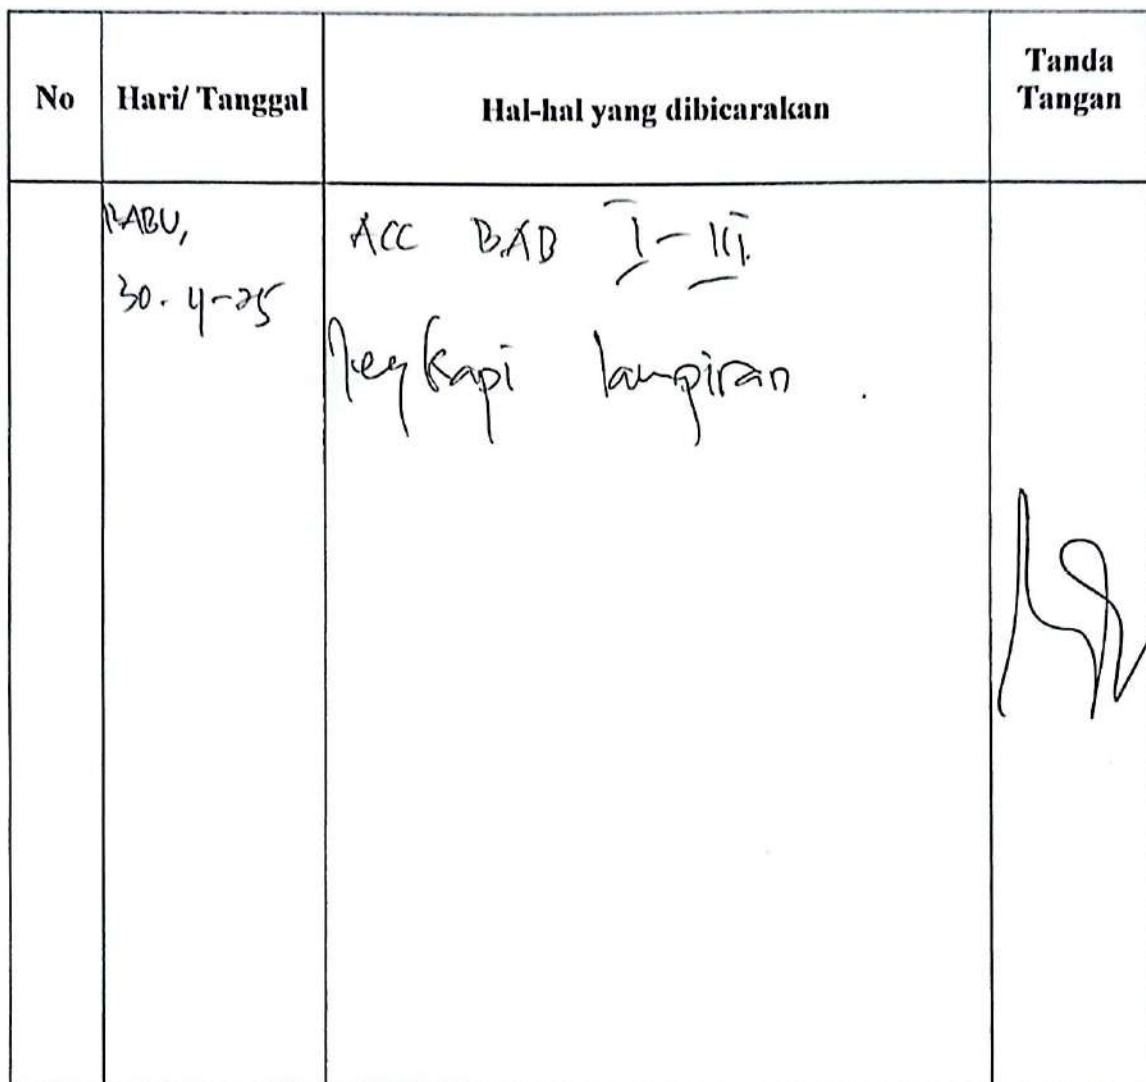 No
Hari/ Tanggal
Hal-hal yang dibicarakan
Tanda
Tangan
RABU,
30. 4-25
ACC BAB I - III.
lengkapi lampiran .